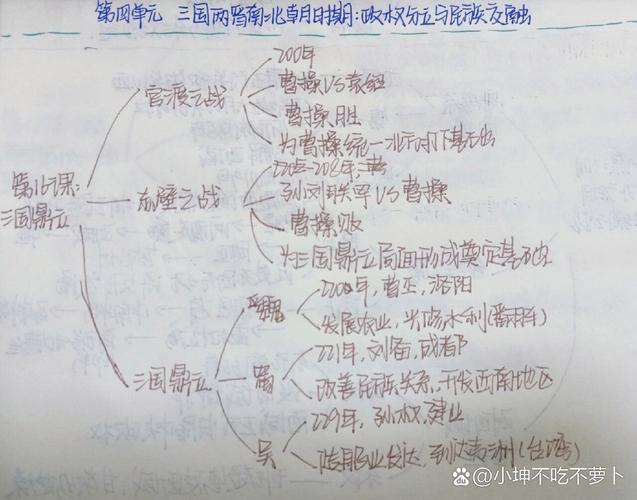 第四单元 三国两晋南北朝时期:政权分立与民族交融
200年
官渡之战
曹操VS袁绍
曹操胜
为曹操统一北方打下基础
第16课:
三国鼎立
赤壁之战
孙刘联军VS曹操
曹操败
为三国鼎立局面形成奠定基础
三国鼎立
魏
发展农业,兴修水利
蜀
221年,刘备,成都
改善民族关系,开发西南地区
吴
229年,孙权,建业
造船业发达,到达夷洲(台湾)
小坤不吃不萝卜